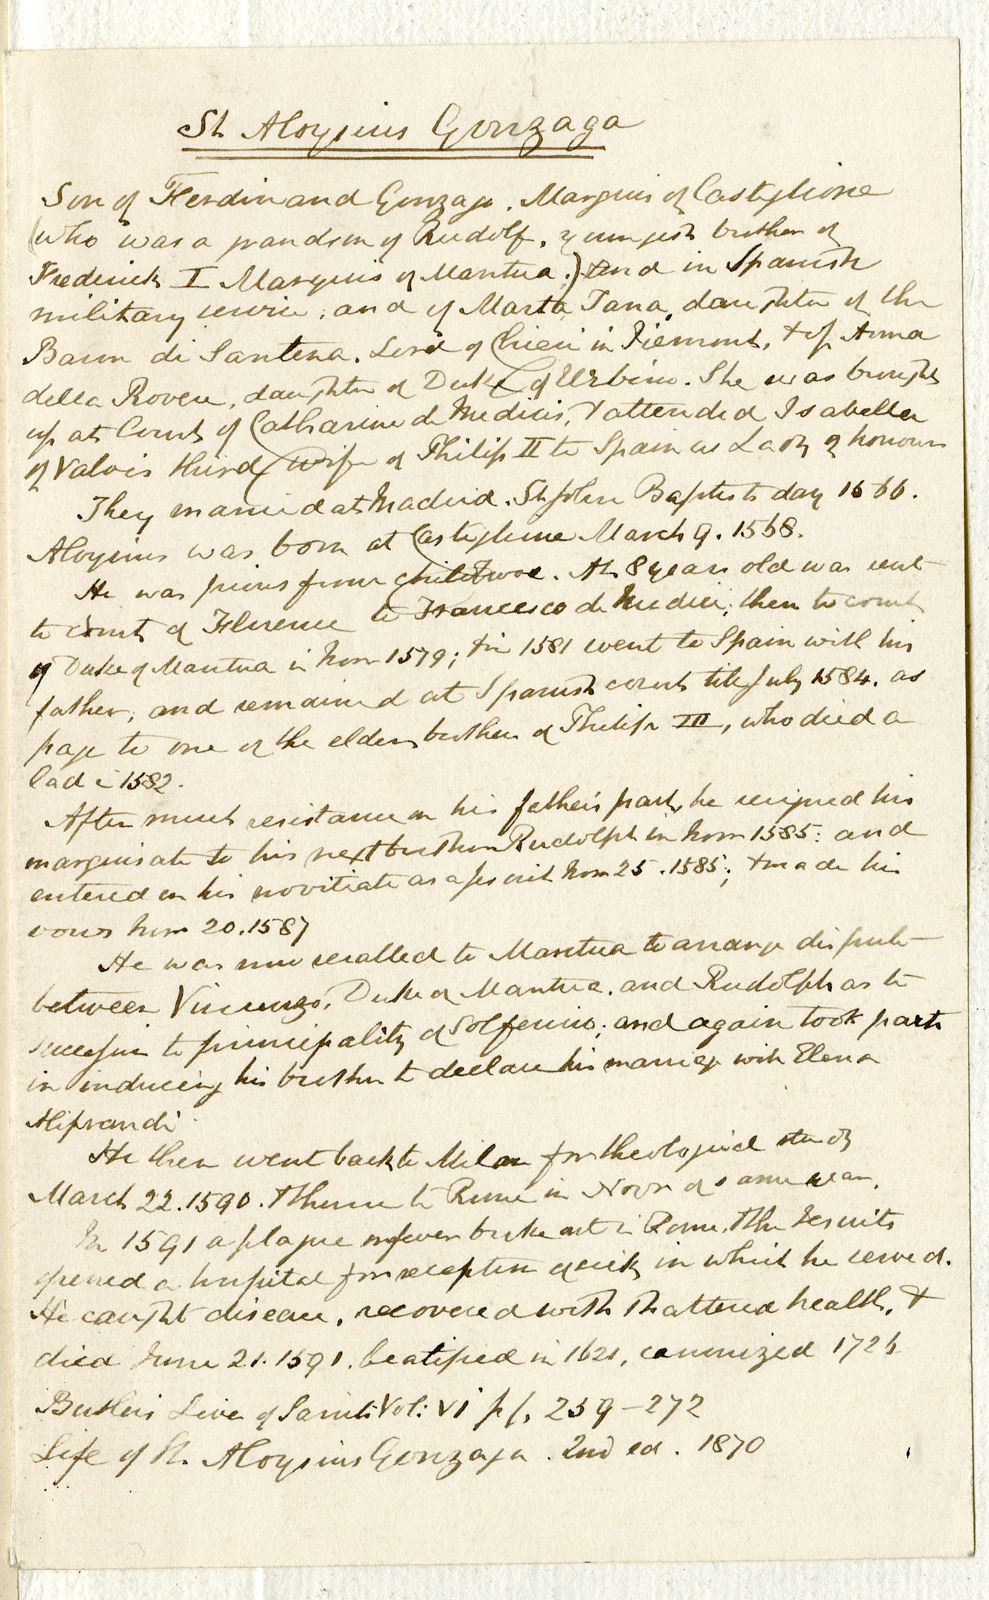 St Aloysius Gonzaga
Son of Ferdinand Gonzaga, Marquis of Castiglione
(who was a grandson of Rudolf, youngest brother of
Frederick I Marquis of Mantua;) and in Spanish
military service; and of Marta Tana, daughter of the
Baron di Santena, Lord of Chieri in Piemont, & of Anna
della Rovere, daughter of Duke of Urbino. She was brought
up at Court of Catharine de Medicis, & attended Isabella
of Valois third wife of Philip II to Spain as Lady of honour
They married at Madrid. St John Baptists day 1566.
Aloysius was born at Castiglione March 9. 1568.
He was pious from childhood. At 8 years old was sent
to court of Florence to Francesco de Medici; then to court
of Duke of Mantua in Nov 1579; & in 1581 went to Spain with his
father, and remained at Spanish court till July 1584. as
page to one of the elder brothers of Philip III, who died a
lad i 1582.
After much resistance on his father's part, he resigned his
marquisate to his next brother Rudolph in Nov 1585: and
entered on his novitiate as a Jesuit Nov 25. 1585; & made his
vows Nov 20. 1587
He was now recalled to Mantua to arrange dispute
between Vincenzo, Duke of Mantua, and Rudolph as to
succession to principality of Solferino; and again took part
in inducing his brother to declare his marriage with Elena
Aliprandi
He then went back to Milan for theological study
March 22. 1590. & thence to Rome in Novr of same year.
In 1591 a plague fever broke out i Rome. & the Jesuits
opened a hospital for reception of sick, in which he served.
He caught disease, recovered with shattered health, &
died June 21. 1591. beatified in 1621, canonized 1726
Butler's Live of Saints Vol: VI pp. 259-272
Life of St. Aloysius Gonzaga. 2nd ed. 1870